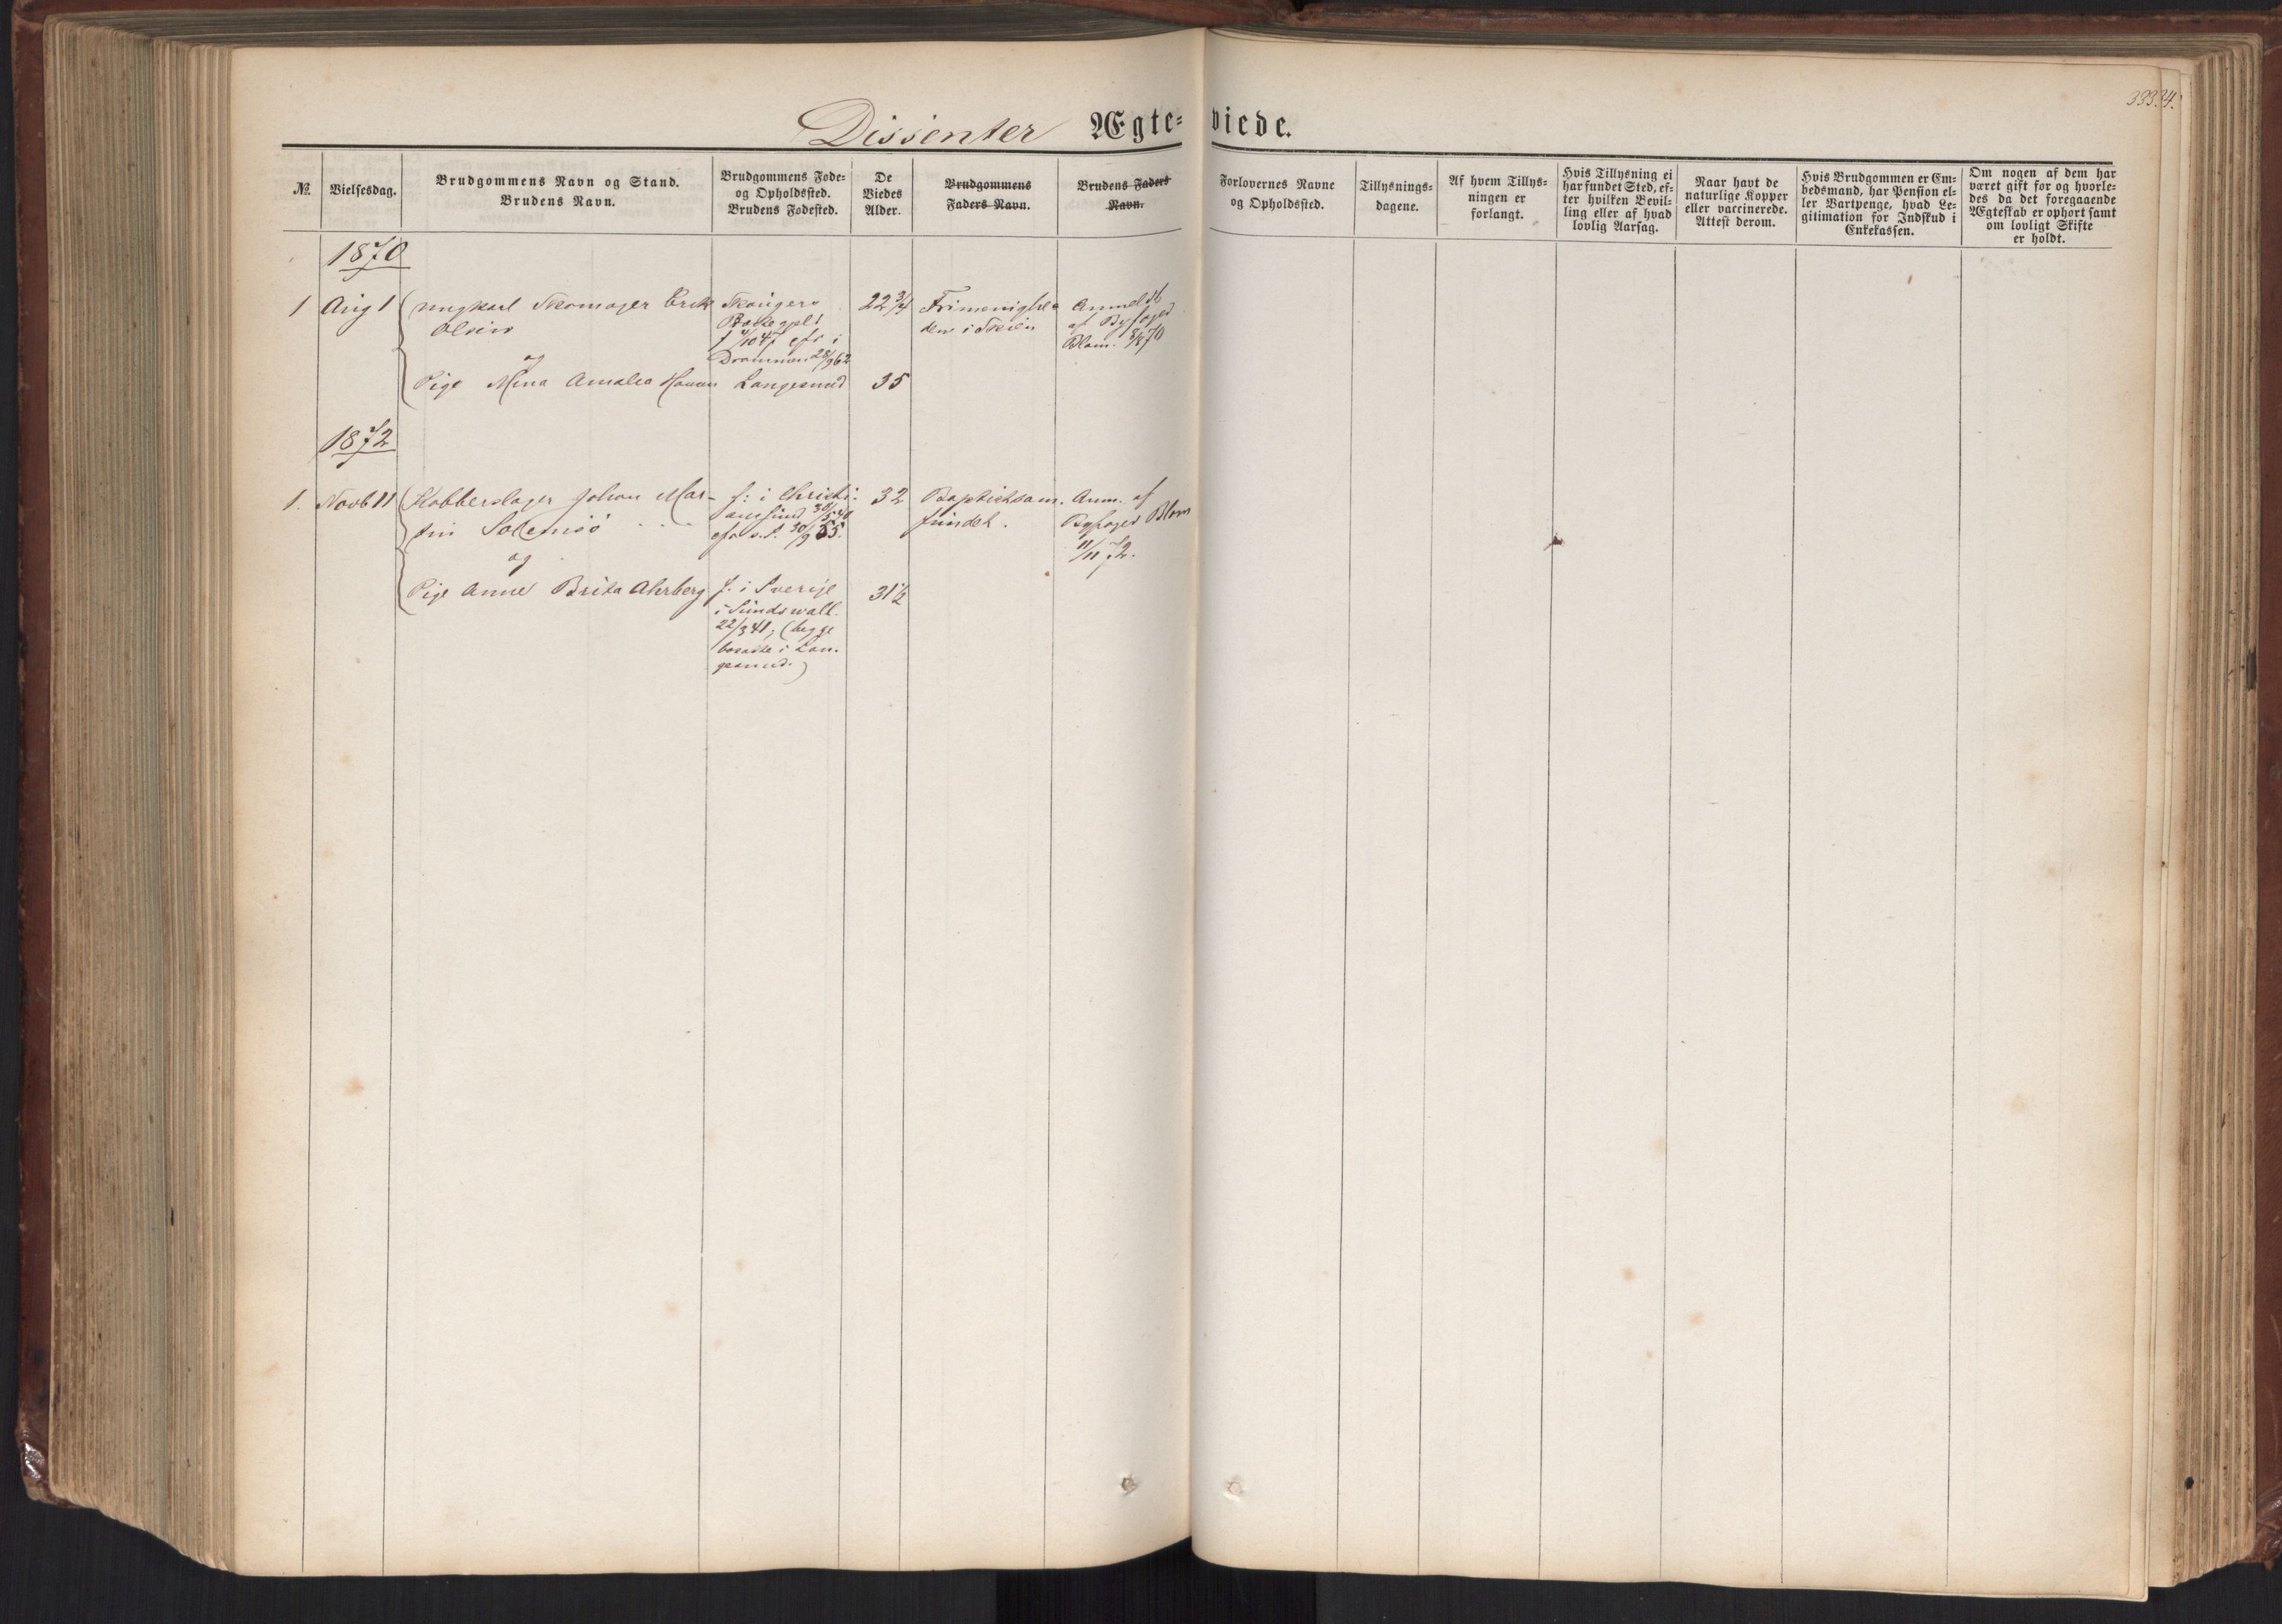 333.
34.
Dissenter Ægte=
viede.
№
Vielsesdag.
Brudgommens Navn og Stand.
Brudens Navn.
Brudgommens Føde=
og Opholdssted.
Brudens Fødested.
De
Viedes
Alder.
Brudgommens
Faders Navn.
Brudens Faders
Navn.
Forlovernes Navne
og Opholdssted.
Tillysnings=
dagene.
Af hvem Tillys=
ningen er
forlangt.
Hvis Tillysning ei
har fundet Sted, ef=
ter hvilken Bevil=
ling eller af hvad
lovlig Aarsag.
Naar havt de
naturlige Kopper
eller vaccinerede.
Attest derom.
Hvis Brudgommen er Em=
bedsmand, har Pension el=
ler Vartpenge, hvad Le=
gitimation for Indskud i
Enkekassen.
Om nogen af dem har
været gift før og hvorle=
des da det foregaaende
Ægteskab er ophørt samt
om lovligt Skifte
er holdt.
1870
1
Aug 1
Ungkarl Skomager Erik
Olsen
og
Pige Mina Amalia Hansen
f 4/10 47 cfr i
Drammen 28/9 62
Langesund
22 3/4
35
Frimenighe=
den i Skien
Anmeldt
af Byfoged
Blom. 8/8 70
1872
1.
Novb 11
Kobberslager Johan Mar-
tin
og
Pige Anne Brita Ahrberg
f: i Christi-
ansund 30/5 40
cfr s. S. 30/9 55.
f. i Sverige
i Sundswall.
22/3 41; (begge
bosatte i Lan-
gesund.)
32
31 1/2
Baptistsam-
fundet.
Anm. af
Byfoged Blom
11/11 72.